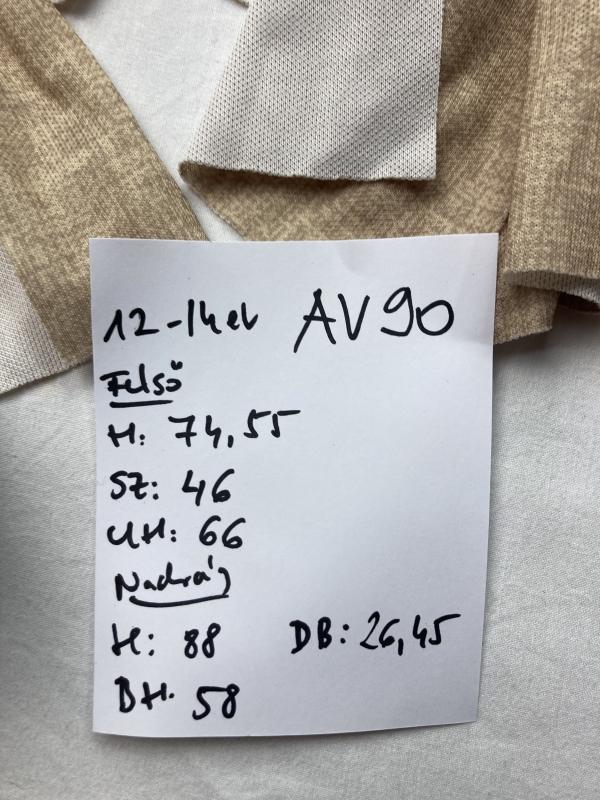 12-14 év AV90
Felső
H: 74,55
SZ: 46
UH: 66
Nadrág
H: 88 DB: 26,45
BH. 58